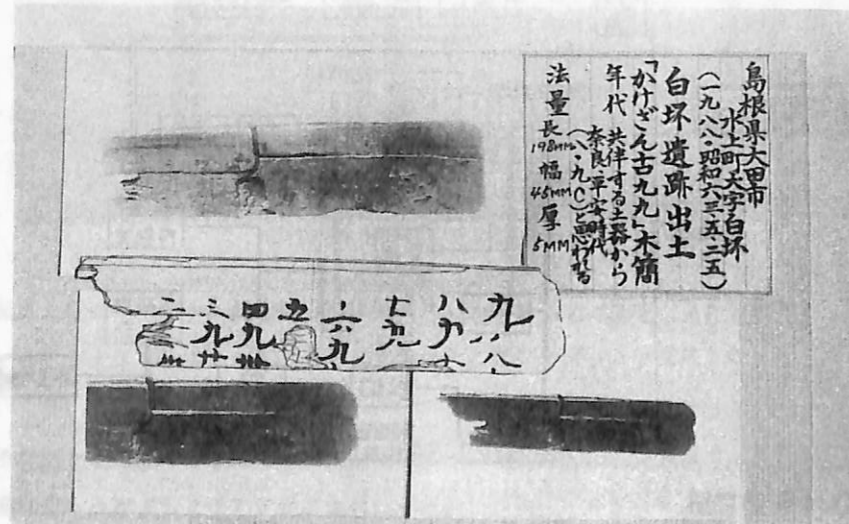 島根県大田市
水上町大字白坏
（一九八八・昭和六三・五・二五）
白坏遺跡出土
「かけざん古九九」木簡
年代 共伴する土器から
奈良・平安時代
（八、九C）と思われる
法量 長198MM 幅45MM 厚5MM
九八
八九
七九
六九
五
四九卅
三九廿
二